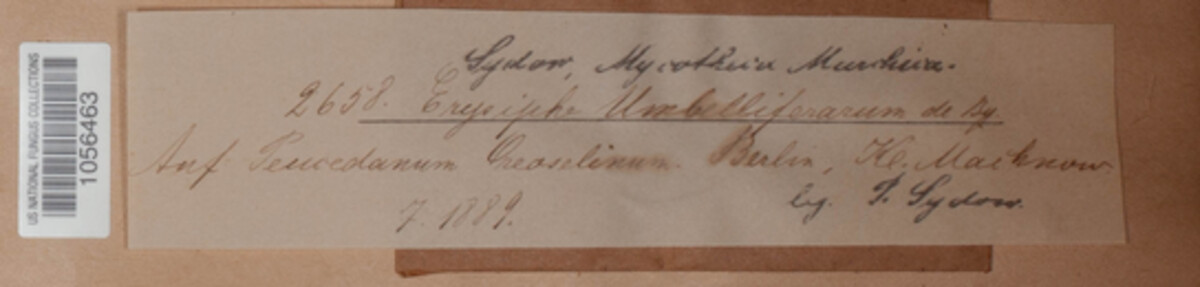 US NATIONAL FUNGUS COLLECTIONS
10564463
Sydow, Mycotheca Marchica.
2658. Erysiphe Umbelliferarum de By.
Auf Peucedanum Oreoselinum. Berlin, Kl. Machnow.
7. 1889.
leg. P. Sydow.